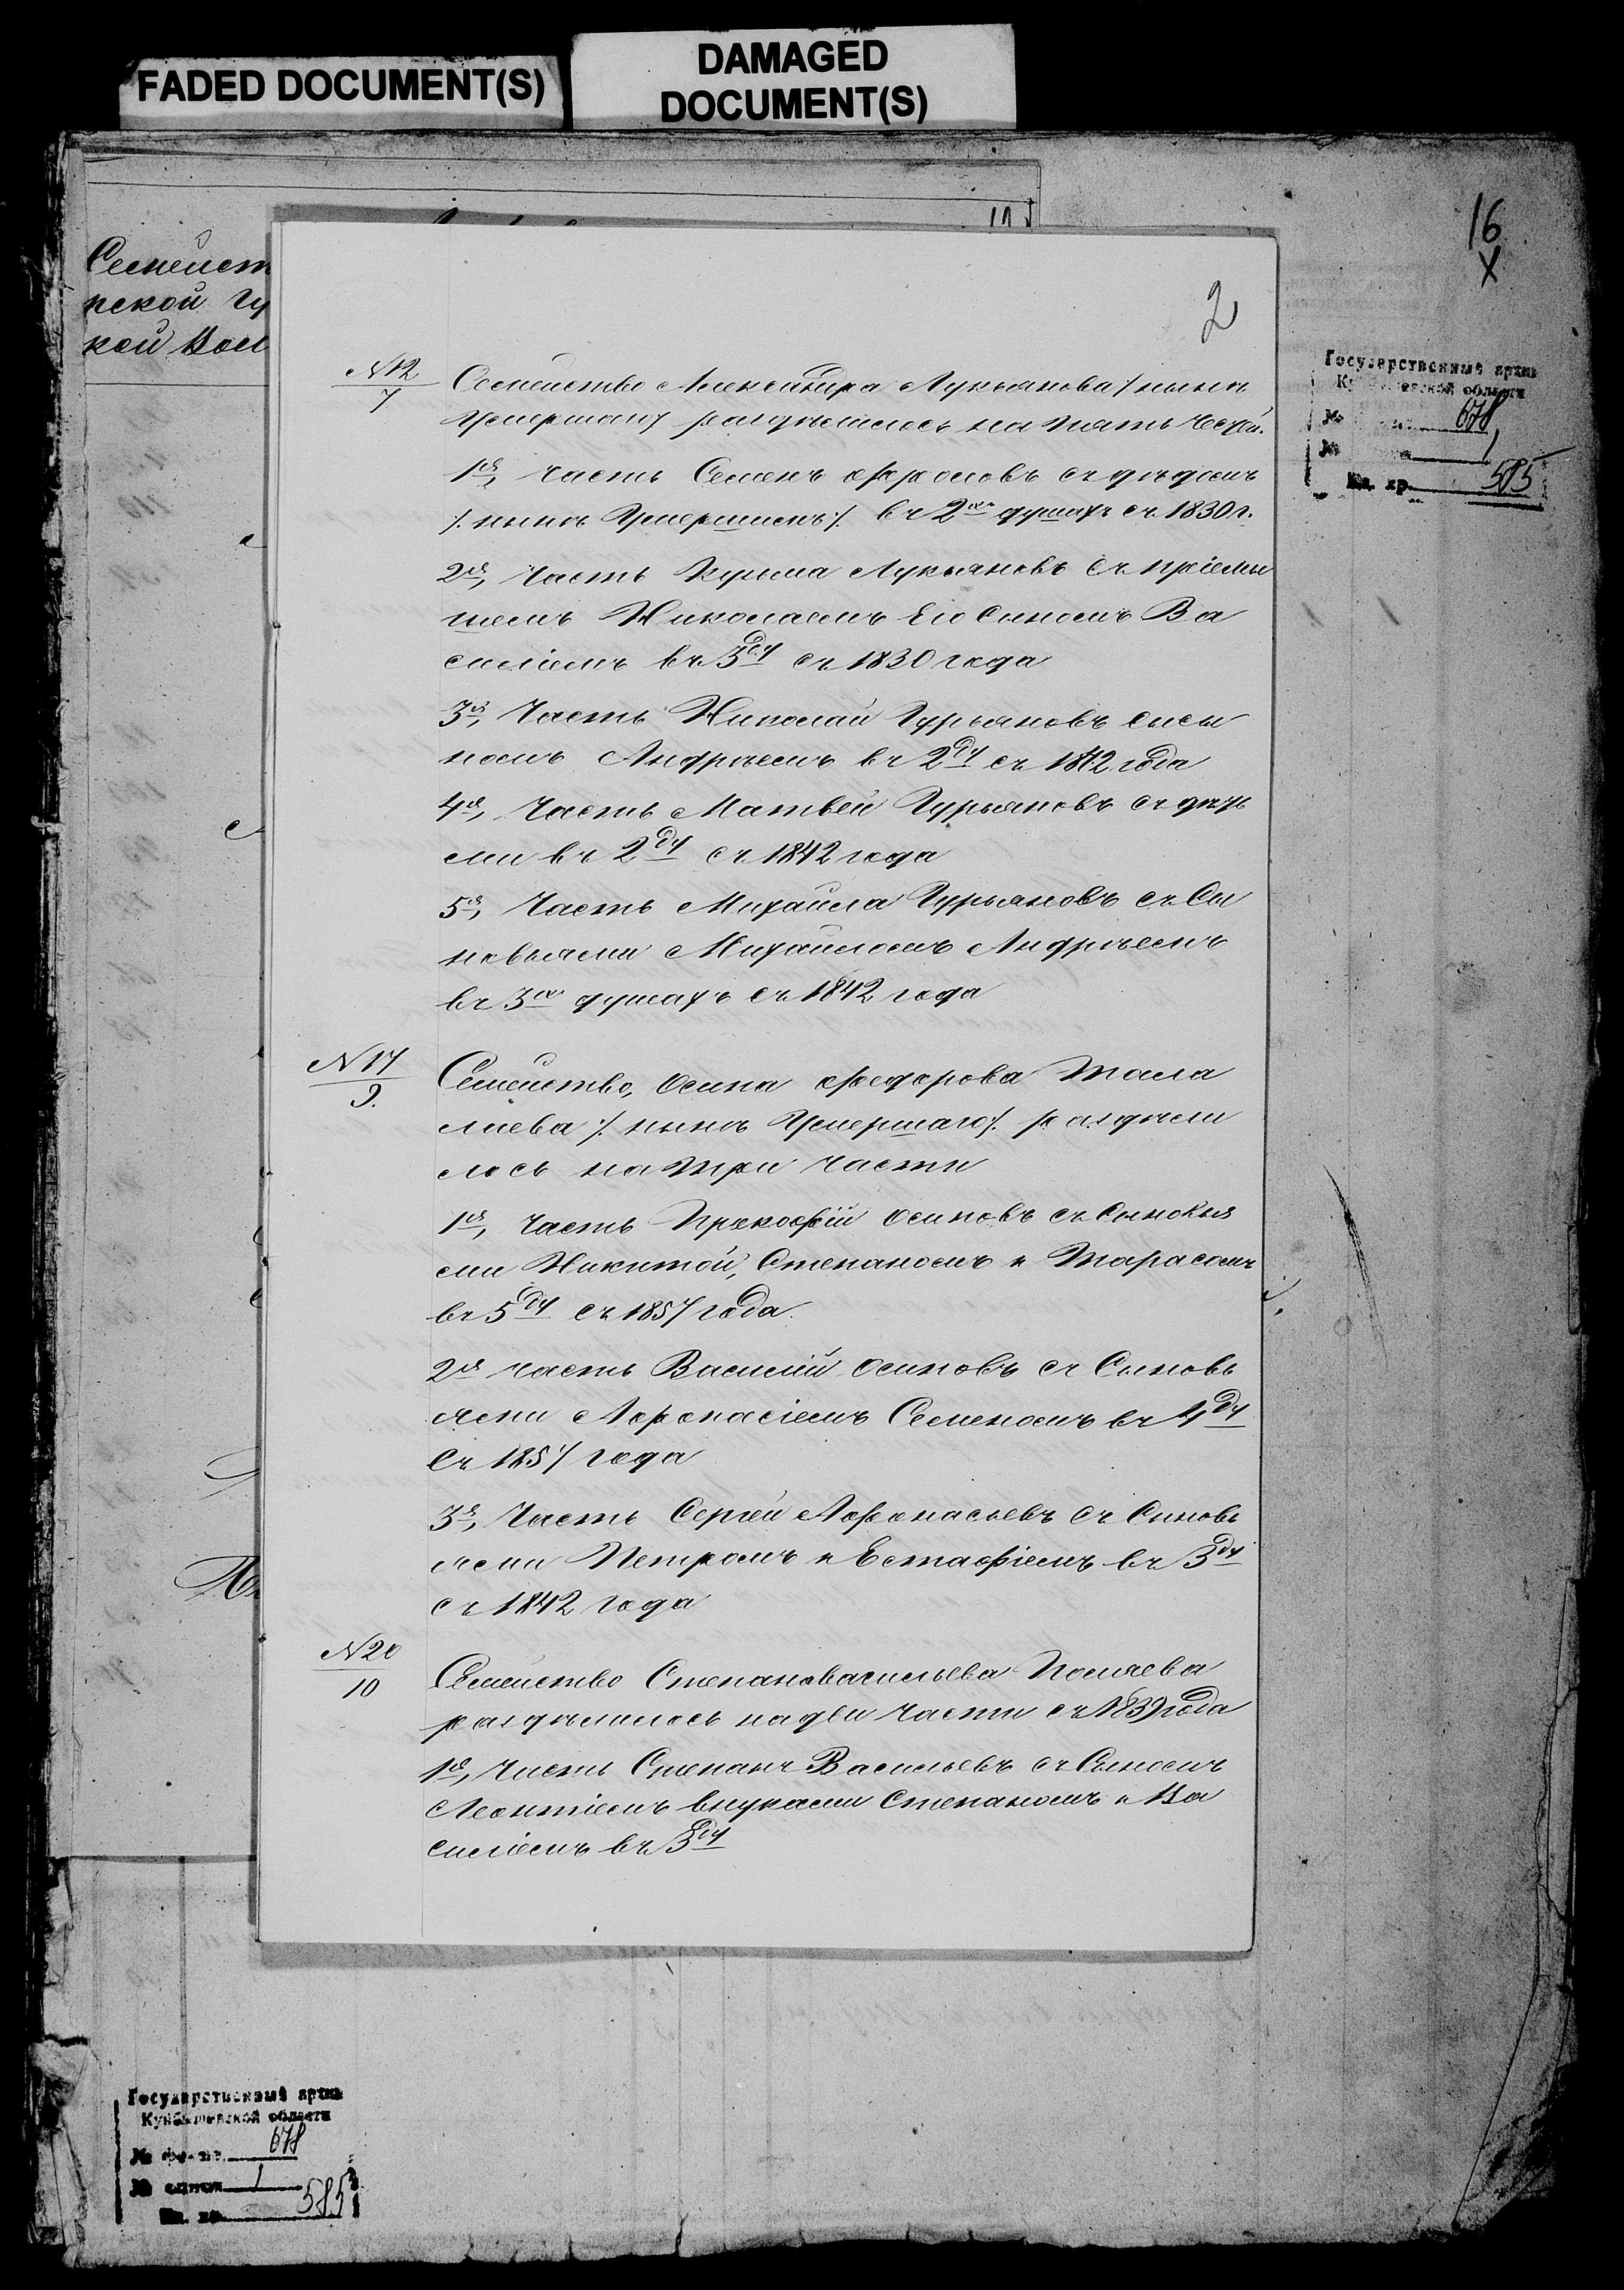 FADED DOCUMENT(S)
DAMAGED
DOCUMENT(S)
16
X
Семейст
рской Гу
кой Вол
2
Государственный архив
Куйбышевской области
№ 678
№ 1
Ед. хр. 585
N12
7
Семейство Александра Лукьянова /: нынѣ
Умершаго:/ раздѣлилось на пять Частей.
1я, часть Семенъ Фроловъ съ дѣдомъ
/: нынѣ Умершимъ :/ въ 2хъ душахъ съ 1830 г.
2я, Часть Кузьма Лукьяновъ съ пріемы
шемъ Николаемъ Его Сыномъ Ва
силіемъ въ 3 ду съ 1830 года
3я, Часть Николай Гурьяновъ съ сы
номъ Андрѣемъ въ 2 ду съ 1842 года
4я, Часть Матвей Гурьяновъ съ дѣть
ми въ 2 ду съ 1842 года
5я, Часть Михайла Гурьяновъ съ Сы
новьями Михайломъ Андрѣемъ
въ 3хъ душахъ съ 1842 года
N 17
9.
Семейство, Осипа Федорова Тала
лаева /: нынѣ Умершаго :/ раздѣли
лось на три части
1я, Часть Прокофій Осиповъ съ Сыновья
ми Никитой, Степаномъ и Тарасомъ
въ 5 ду съ 1857 года.
2я часть Василій Осиповъ съ Сыновь
ями Афонасіемъ Семеномъ въ 4 ду
съ 1857 года
3я, Часть Сергей Афонасьевъ съ Сыновь
ями Петромъ и Естафіемъ въ 3 ду
съ 1842 года
N 20
10
Семейство Степана Васильева
раздѣлилось на двѣ части съ 1839 года
1я, Часть Степанъ Васильевъ съ Сыномъ
Леонтіемъ внуками Степаномъ и Ва
силіемъ въ 3 ду
Государственный архив
Куйбышевской области
№ фонда 678
№ описи 1
Ед. хр. 585